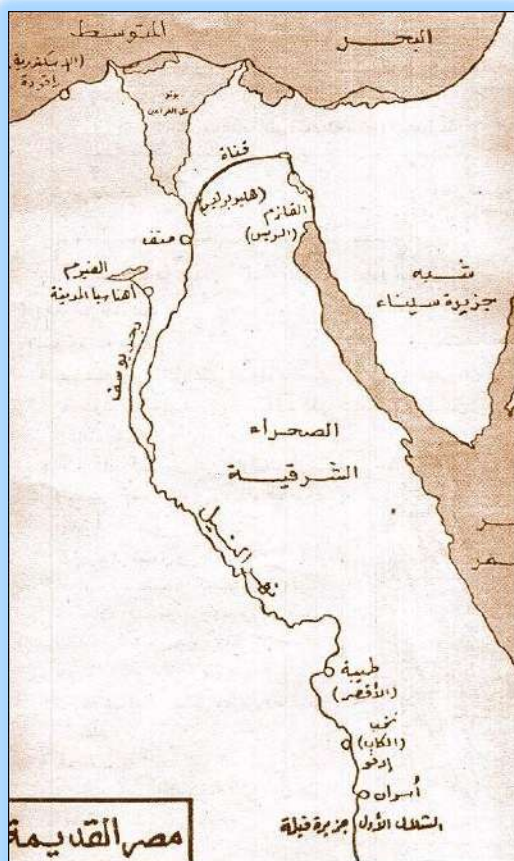 البحر
المتوسط
(الإسكندرية)
قناة
(هليوبوليس)
القلزم
(السويس)
منف
شبه
جزيرة سيناء
الفيوم
أهناسيا المدينة
بحر يوسف
الصحراء
الشرقية
نهر النيل
ـر
ـمر
طيبة
(الأقصر)
نخب
(الكاب)
إدفو
أسوان
الشلال الأول جزيرة فيلة
مصر القديمة